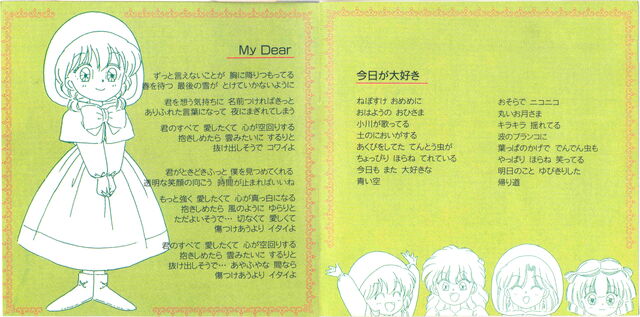 My Dear
ずっと言えないことが 胸に降りつもってる
春を待つ 最後の雪が とけていかないように
君を想う気持ちに 名前つければきっと
ありふれた言葉になって 夜にまぎれてしまう
君のすべて 愛したくて 心が空回りする
抱きしめたら 雲みたいに するりと
抜け出しそうで コワイよ
君がときどきふっと 僕を見つめてくれる
透明な笑顔の向こう 時間が止まればいいね
もっと強く 愛したくて 心が真っ白になる
抱きしめたら 風のように ゆらりと
ただよいそうで… 切なくて 愛しくて
傷つけあうより イタイよ
君のすべて 愛したくて 心が空回りする
抱きしめたら 雲みたいに するりと
抜け出しそうで… あやふやな 間なら
傷つけあうより イタイよ
今日が大好き
ねぼすけ おめめに
おはようの おひさま
小川が歌ってる
土のにおいがする
あくびをしてた てんとう虫が
ちょっぴり ほらね てれている
今日も また 大好きな
青い空
おそらで ニコニコ
丸いお月さま
キラキラ 揺れてる
波のブランコに
葉っぱのかげで でんでん虫も
やっぱり ほらね 笑ってる
明日のこと ゆびきりした
帰り道